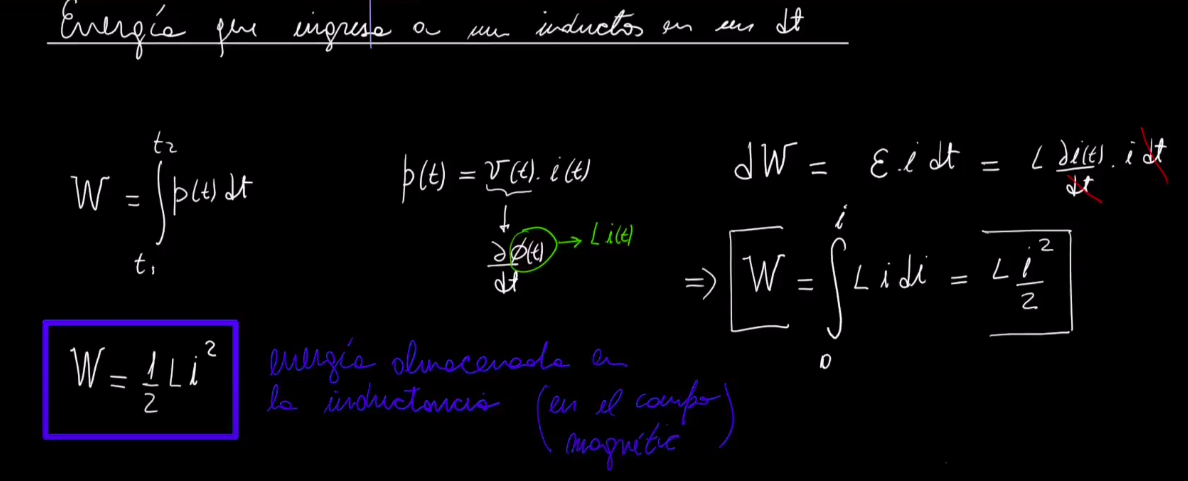 Energía que ingresa a un inductos en un dt
W = ∫_{t₁}^{t₂} p(t) dt
p(t) = v(t). i(t)
↓
∂ϕ(t)/dt → L i(t)
dW = ε. i dt = L ∂i(t)/dt . i dt
⇒ W = ∫_{0}^{i} L i di = L i²/2
W = 1/2 L i²
energía almacenada en
la inductancia (en el campo
magnétic)